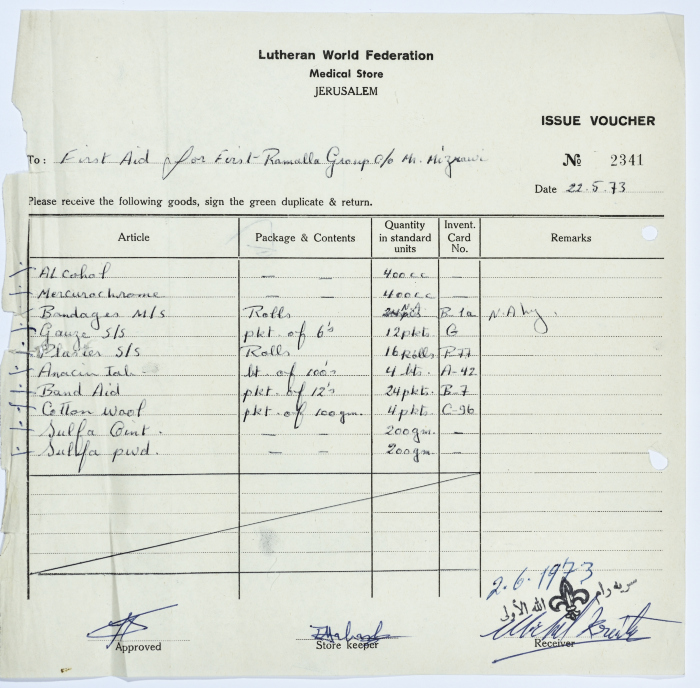 Lutheran World Federation
Medical Store
JERUSALEM
ISSUE VOUCHER
To: First Aid for First Ramalla Group c/o Mr.
№ 2341
Date 22.5.73
Please receive the following goods, sign the green duplicate & return.
Article Package & Contents Quantity in standard units Invent. Card No. Remarks
Alcohol — — 400cc —
Mercurochrome — — 400cc —
Bandages M/S Rolls N.A B-1a
Gauze S/S pkt of 6's 12pkts G
Plaster S/S Rolls 16Rolls P-77
Anacin Tab. bt. of 100's 4 bts. A-42
Band Aid pkt-of 12's 24pkt. B-7
Cotton Wool pkt. of 100gm. 4pkt. C-96
Sulfa Oint. — — 200gm. —
Sulfa pwd. — — 200gm. —
2.6.1973
سرية رام
الله الأولى
Approved Store keeper Receiver